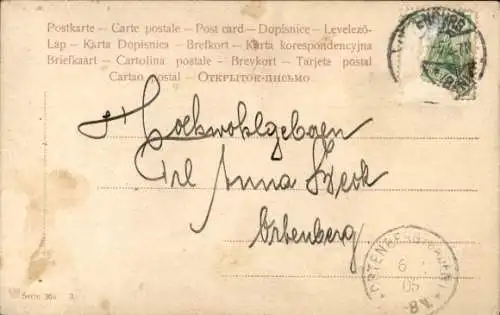 Postkarte – Carte postale – Post card – Dopisnice – Levelező-
Lap – Karta Dopisnica – Brefkort – Karta korespondencyjna
Briefkaart – Cartolina postale – Brevkort – Tarjeta postal
Cartao postal – Открытое-письмо
Hochwohlgeboren
Frl Anna Beck
Ortenberg
ORTENBERG (BADEN)
6
05
Serie 304